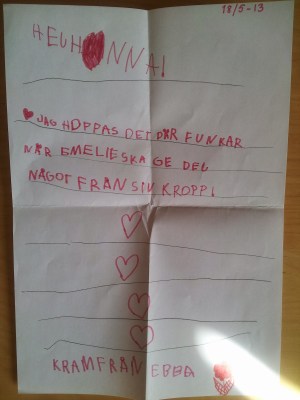 18/5-13
HEJ HANNA!
JAG HOPPAS DET DÄR FUNKAR
NÄR EMELIE SKA GE DEJ
NÅGOT FRÅN SIN KROPP!
KRAM FRÅN EBBA